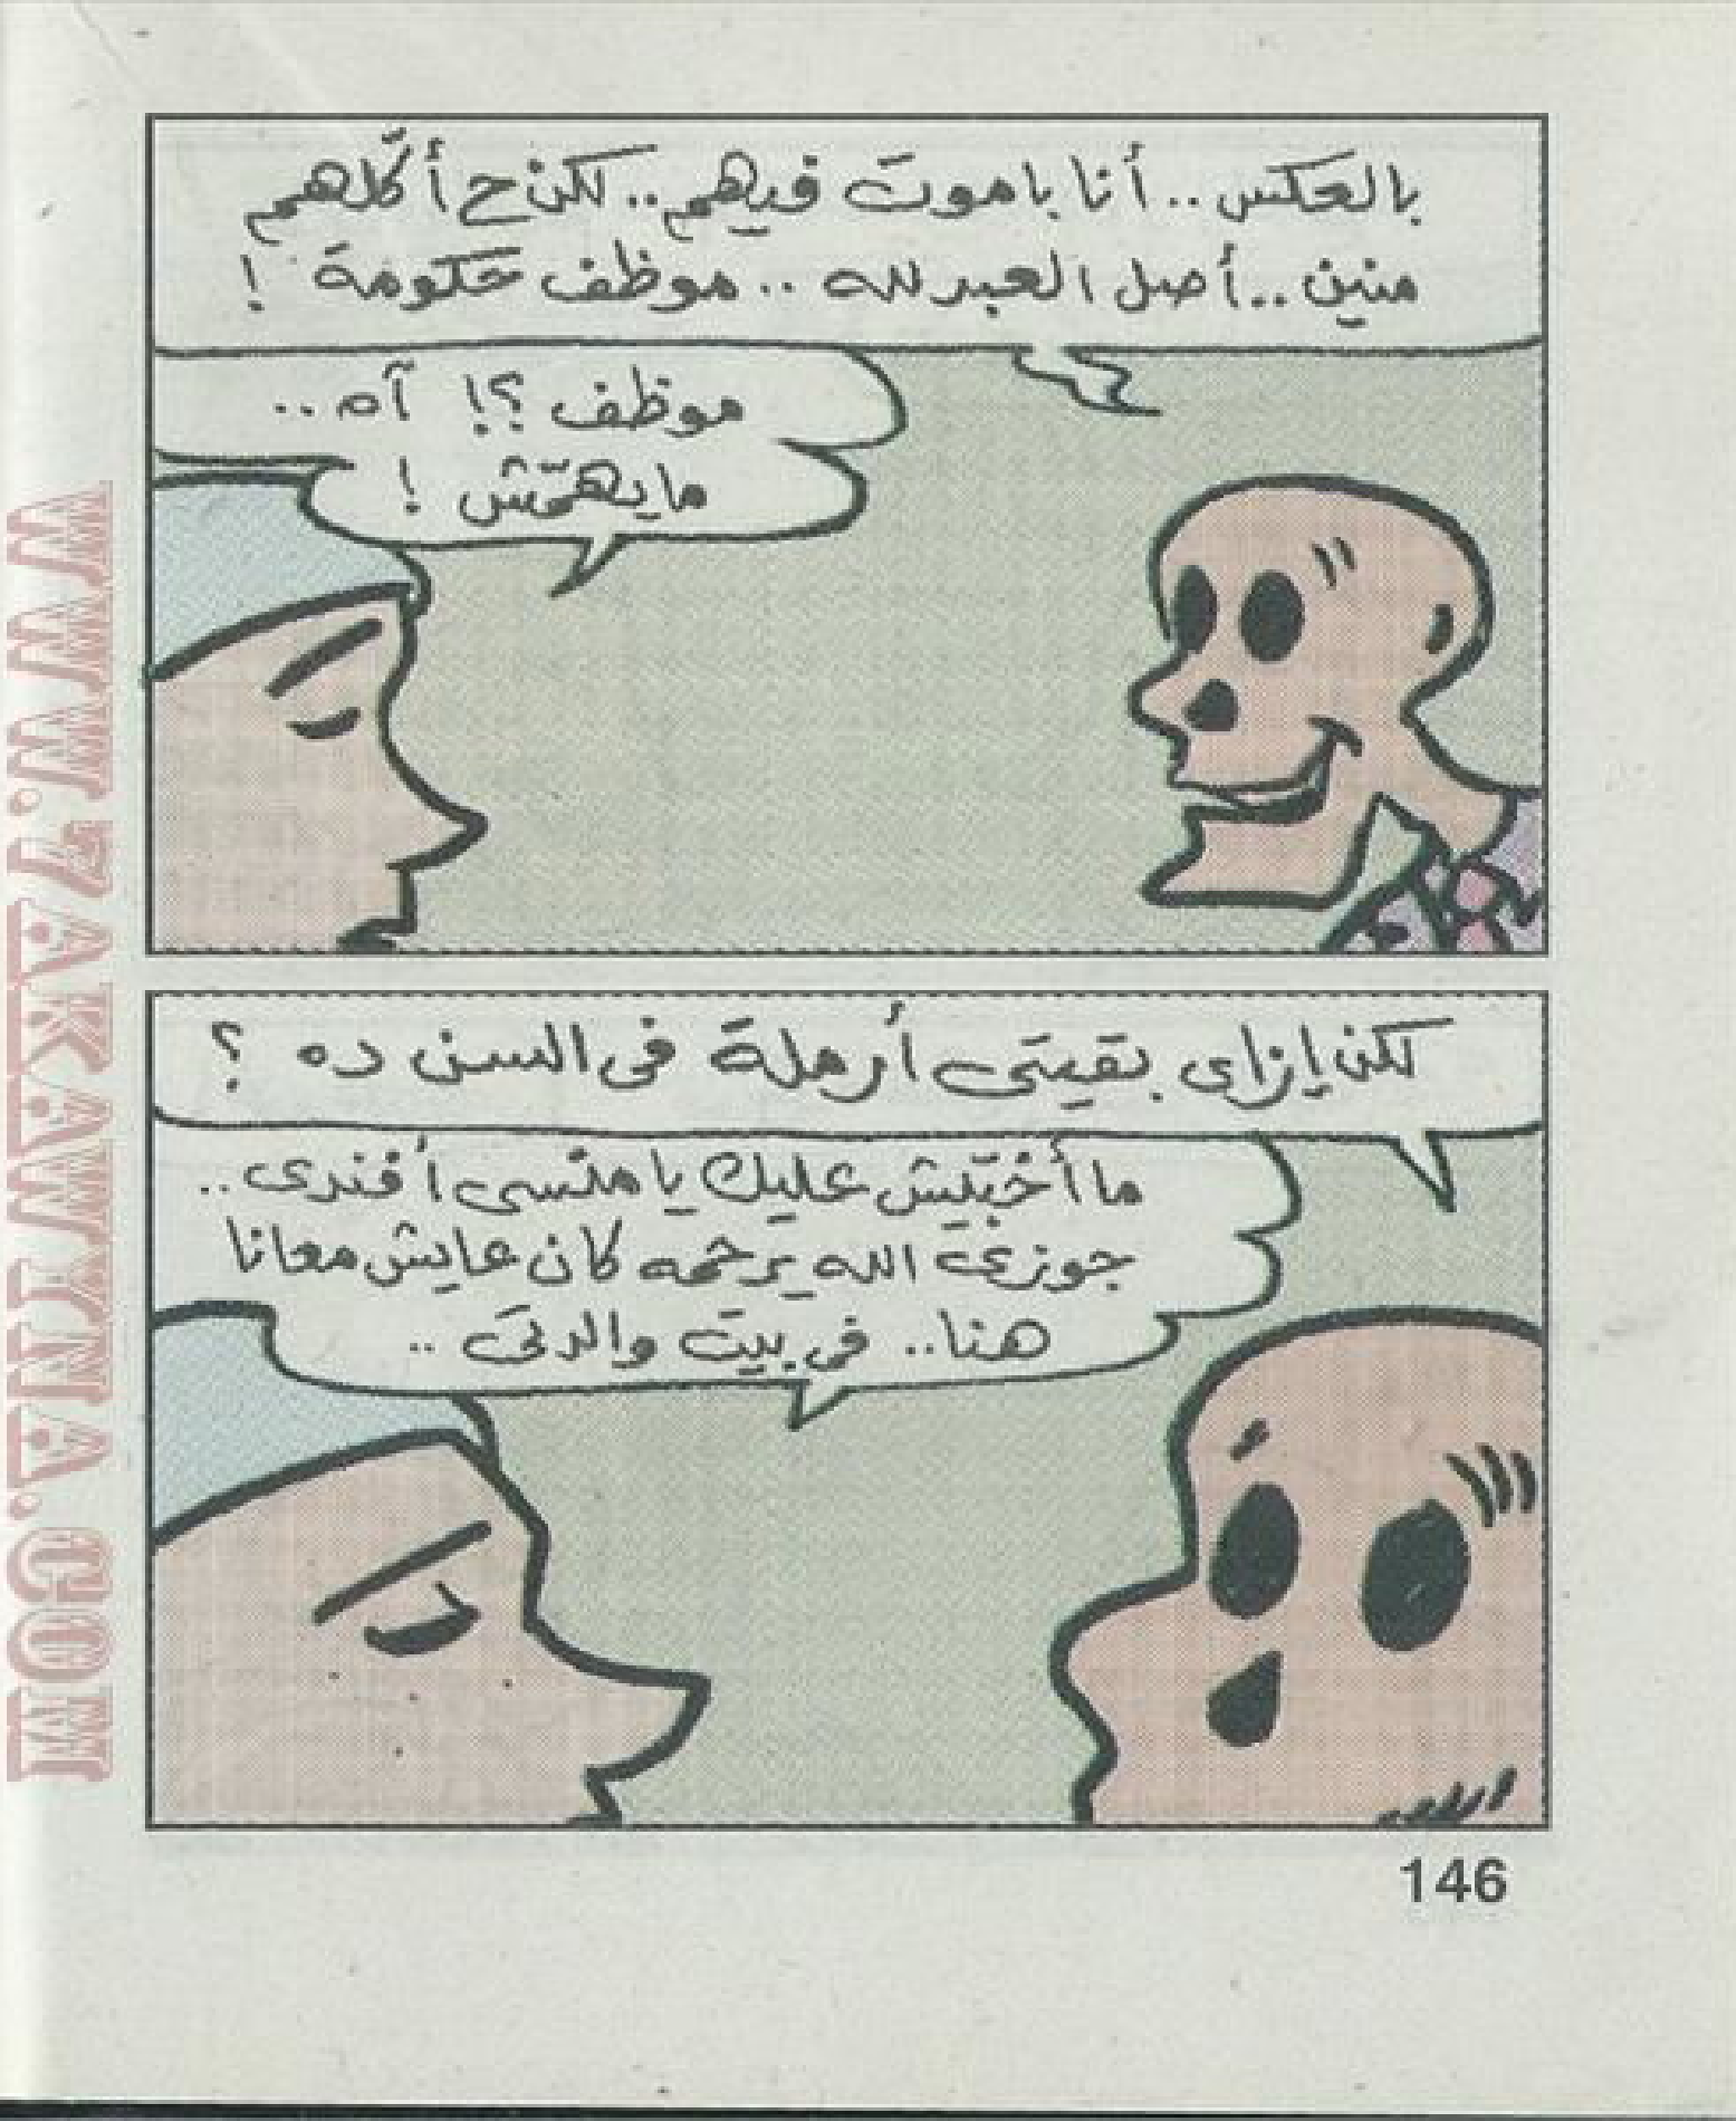 بالعكس.. أنا باموت فيهم.. لكن ح أكّلهم
منين.. أصل العبد لله .. موظف حكومة !
موظف ؟! آه ..
مايهمّش !
لكن إزاى بقيتى أرملة فى السن ده ؟
ما أخبّيش عليك يا منسى أفندى ..
جوزى الله يرحمه كان عايش معانا
هنا.. فى بيت والدتى ..
146